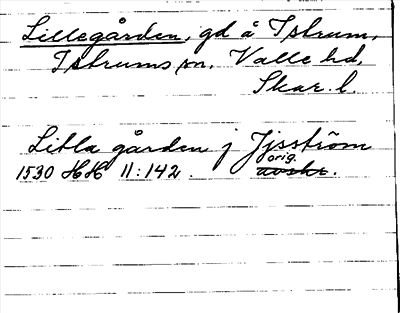 Lillegården, gd å Istrum,
Istrums sn. Valle hd.
Skar. l.
Litla gården j Jjsström
1530 HH 11:142. orig.
avskr.